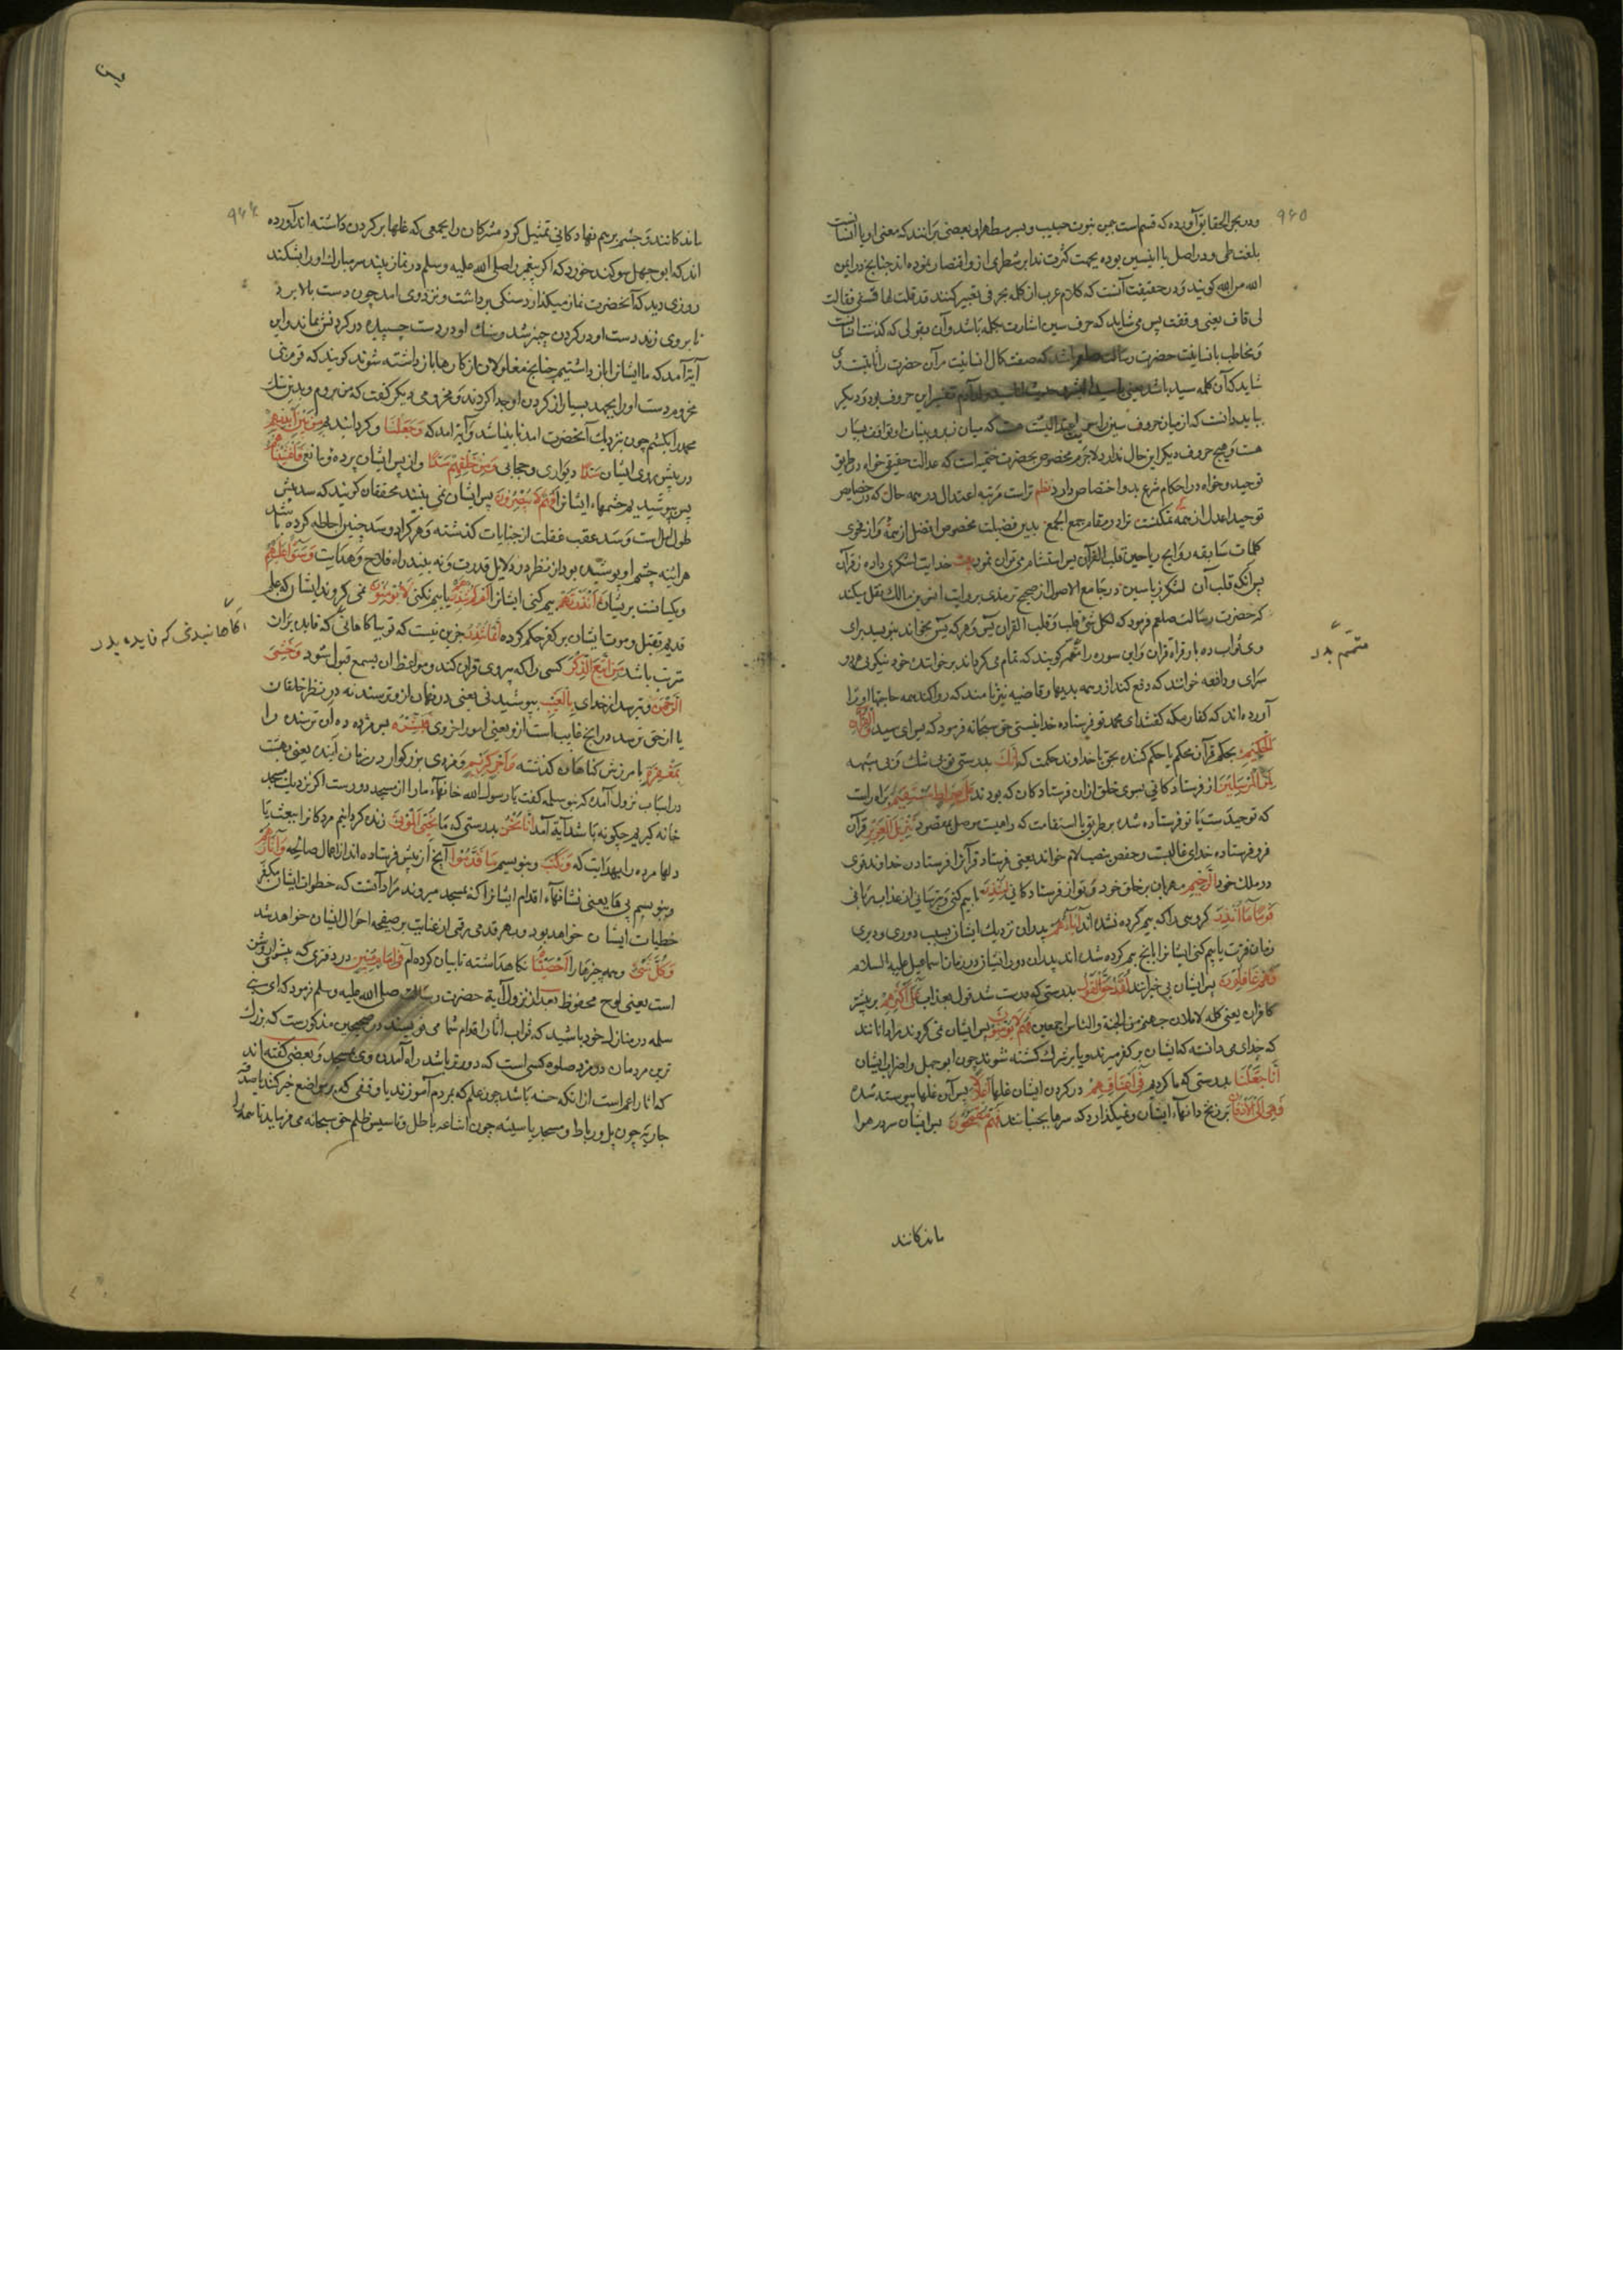 ۹۶۵
ودر بحر الحقایق آورده که قسم است بیمن نبوت حبیب و بسر مطهر او و بعضی برانند که معنی او یا انسانست
بلغت طی و در اصل یا انیسین بوده بجهت کثرت ندا بر شطری ازو اقتصار نموده اند چنانچه در ایمن
الله من الله کویند و در حقیقت آنست که کلام عرب از کلمه بحرفی تعبیر کنند قد قلت لها قفی فقالت
لی قاف یعنی وقفت پس می شاید که حرف سین اشارت بکلمه باشد و آن بقولی که کذشت انسانست
و مخاطب بانسانیت حضرت رسالت صلعم باشد که صفت کمال انسانیت مرآن حضرت را ثابتست و
شاید که آن کلمه سید باشد یعنی یا سید البشر و حدیث انا سید ولد آدم تفسیر این حروف بود و دیکر
بباید دانست که از میان حروف سین را سویت اعتدالیست هست که میان زبر و بینات او توافق بسیار
هست و هیچ حروف دیکر این حال ندارد لاجرم مخصوص بحضرت ختمیه است که عدالت حقیقی خواه در طریق
توحید و خواه در احکام شرع بدو اختصاص دارد نظم تراست مرتبه اعتدال در همه حال که در خصایص
توحید اعدل از همه تمکنت تراد در مقام جمع الجمع بدین فضیلت مخصوص افضل از همه و از فحوی
کلمات سابقه روایح ریاحین قلب القران یس استشمام می توان نمود خدایت لشکری داده ز قرآن
پس آنکه قلب آن لشکر ز یاسین در جامع الاصول از صحیح ترمذی بروایت انس بن مالک نقل میکند
که حضرت رسالت صلعم فرمود که لکل شئ قلب و قلب القران یس و هر که یس بخواند بنویسد برای
وی ثواب ده بار قراة قران و این سوره را معمه کویند که تمام می کرداند بر خوانند خود نیکوئی هر دو
سرای و دافعه خوانند که دفع کند ازو همه بدیها و قاضیه نیز نامند که روا کند همه حاجتها او را
آورده اند که کفار مکه کفتند ای محمد تو فرستاده خدا نیستی حق سبحانه فرمود که یس ای سید والقران
الحکیم بحکم قرآن محکم یا حکم کننده بحق یا خداوند حکمت که انک بدرستی تو بی شک و بی شبهه
لمن المرسلین از فرستادکانی بسوی خلق ازان فرستادکان که بودند علی صراط مستقیم براه راست
که توحیدست یا تو فرستاده شده بر طریق با استقامت که راهیست موصل بمقصود تنزیل العزیز قرآن
فرو فرستاده خدای غالبست و حفص بنصب لام خواند یعنی فرستاد قرآنرا فرستادن خداوند قوی
در ملک خود الرحیم مهربان بر خلق خود و تو از فرستادکانی لتنذر تا بیم کنی و بترسانی از عذاب ربانی
قوما ما انذر کروهی را که بیم کرده نشده اند اباؤهم پدران نزدیک ایشان بسبب دوری و دیری
زمان فترت یا بیم کنی ایشانرا بانچه بیم کرده شده اند پدران دور ایشان در زمان اسماعیل علیه السلام
فهم غافلون پس ایشان بی خبرانند لقد حق القول بدرستی که درست شد قوله بعذاب علی اکثرهم بر بیشتر
کافران یعنی کلمه لاملئن جهنم من الجنة والناس اجمعین فهم لا یؤمنون پس ایشان نمی کروند مراد آنانند
که خدای می دانسته که ایشان بر کفر میرند و یا بر شرک کشته شوند چون ابو جهل و اضراب ایشان
انا جعلنا بدرستی که ما کردیم فی اعناقهم در کردن ایشان غلها اغلالا پس آن غلها پیوسته شده
فهی الی الاذقان بر زنخ دانهاء ایشان و نمیکذارد که سرها بجنبانند فهم مقمحون پس ایشان سر در هوا
ماندکانند
متمم بدر
یس
۹۶۶
ماندکانند و چشم بر هم نهادکانی تمثیل کرد مشرکان را بجمعی که غلها بر کردن داشته اند آورده
اند که ابو جهل سوکند خورد که اکر پیغمبر را صلی الله علیه و سلم در نماز بیند سر مبارک او را بشکند
روزی دید که آنحضرت نماز میکذارد سنکی برداشت و نزد وی امد چون دست بالا برد
تا بر وی زند دست او در کردن چنبر شد و سنک او در دست چسپیده در کردنش بماند و این
آیة آمد که ما ایشانرا باز داشتیم چنانچه مغلولان از کارها باز داشته شوند کویند که قوم بنی
مخزوم دست او را بجهد بسیار از کردن او جدا کردند و مخزومی دیکر کفت که من بروم و بدین سنک
محمد را بکشم چون بنزدیک آنحضرت امد نابینا شد و آیة امد که وجعلنا و کردانیدیم من بین ایدیهم
در پیش روی ایشان سدا دیواری و حجابی ومن خلفهم سدا و از پس ایشان پرده و مانعی فاغشیناهم
پس بپوشیدیم چشمهاء ایشانرا فهم لا یبصرون پس ایشان نمی بینند محققان کویند که سد پیش
طول املست و سد عقب غفلت از جنایات کذشته و هر کرا دو سد چنین احاطه کرده باشد
هر اینه چشم او پوشیده بود از نظر در دلایل قدرت و نه بیند راه فلاح و هدایت وسواء علیهم
و یکسانست بریشان أانذرتهم بیم کنی ایشانرا ام لم تنذرهم یا بیم نکنی لا یؤمنون نمی کروند ایشان که علم
قدیم بقتل و موت ایشان بر کفر حکم کرده انما تنذر جزین نیست که تو بیاکاهانی که فایده بران
مترتب باشد من اتبع الذکر کسی را که پیروی قران کند و مواعظ ان بسمع قبول شنود وخشی
الرحمن و بترسد از خدای بالغیب بپوشیدنی یعنی در نهان ازو ترسند نه در نظر خلقان
یا از حق ترسد در انچه غایب است ازو یعنی امور اخروی فبشره پس مژده ده آن ترسنده را
بمغفرة بامرزش کناهان کذشته و اجر کریم و مزدی بزرکوار در زمان آینده یعنی بهشت
در اسباب نزول آمده که بنو سلمه کفت یا رسول الله خانهاء ما را از مسجد دورست اکر نزدیک مسجد
خانه کیریم چکونه باشد آیة آمد انا نحن بدرستی که ما نحیی الموتی زنده کردانیم مردکانرا ببعث یا
دلها مرده را بهدایت که ونکتب و بنویسیم ما قدموا آنچه از پیش فرستاده اند از اعمال صالحه واثارهم
و بنویسیم پی ها یعنی نشانهاء اقدام ایشانرا که بمسجد میروند مراد آنست که خطوات ایشان مکفر
خطیات ایشان خواهد بود و بهر قدمی رقمی از عنایت بر صفیحه احوال ایشان خواهد شد
وکل شئ و همه چیزها را احصیناه نکاه داشته تا بیان کرده ام فی امام مبین در دفتری که پیشوای روشن
است یعنی لوح محفوظ بعد از نزول آیة حضرت رسالت صلی الله علیه و سلم فرمود که ای بنی
سلمه در منازل خود باشید که ثواب اثار اقدام شما می نویسند در صحیحین مذکورست که بزرک
ترین مردمان در مزد صلوه کسی است که دورتر باشد راه آمدن وی بمسجد و بعضی کفته اند
که اثار اعم است از انکه حسنه باشد چون علم که بمردم آموزند یا وقفی که بر مواضع خیر کنند یا صدقه
جاریه چون پل و رباط و مسجد یا سیئه چون اشاعه باطل و تاسیس ظلم حق سبحانه می فرماید تا جمله را
آکاهانیدنی که فایده بدر